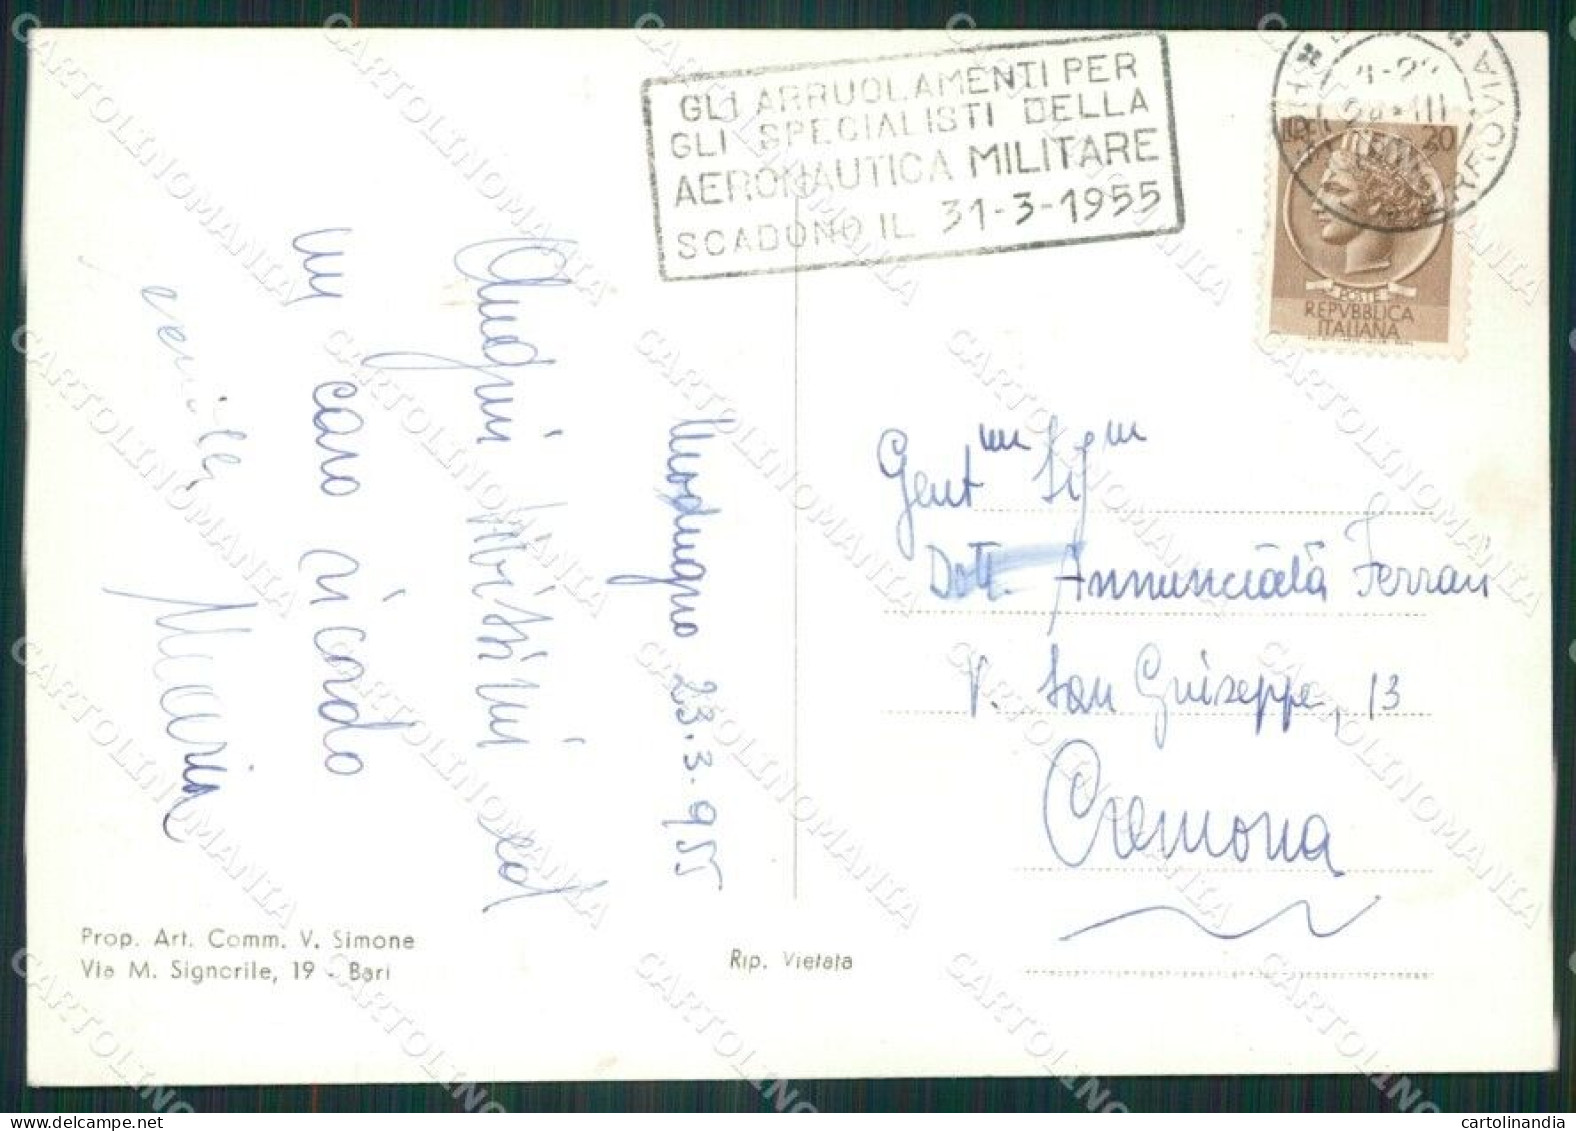 GLI ARRUOLAMENTI PER
GLI SPECIALISTI DELLA
AERONAUTICA MILITARE
SCADONO IL 31-3-1955
LIRE 20
POSTE
REPVBBLICA
ITALIANA
Modugno 23.3.955
Auguri vivissimi ed
un caro ricordo
Maria
Gent.ma Sig.na
Dott. Annunciata Ferrari
V. San Giuseppe, 13
Cremona
Prop. Art. Comm. V. Simone
Via M. Signorile, 19 - Bari
Rip. Vietata
CARTOLINOMANIA
cartolinandia